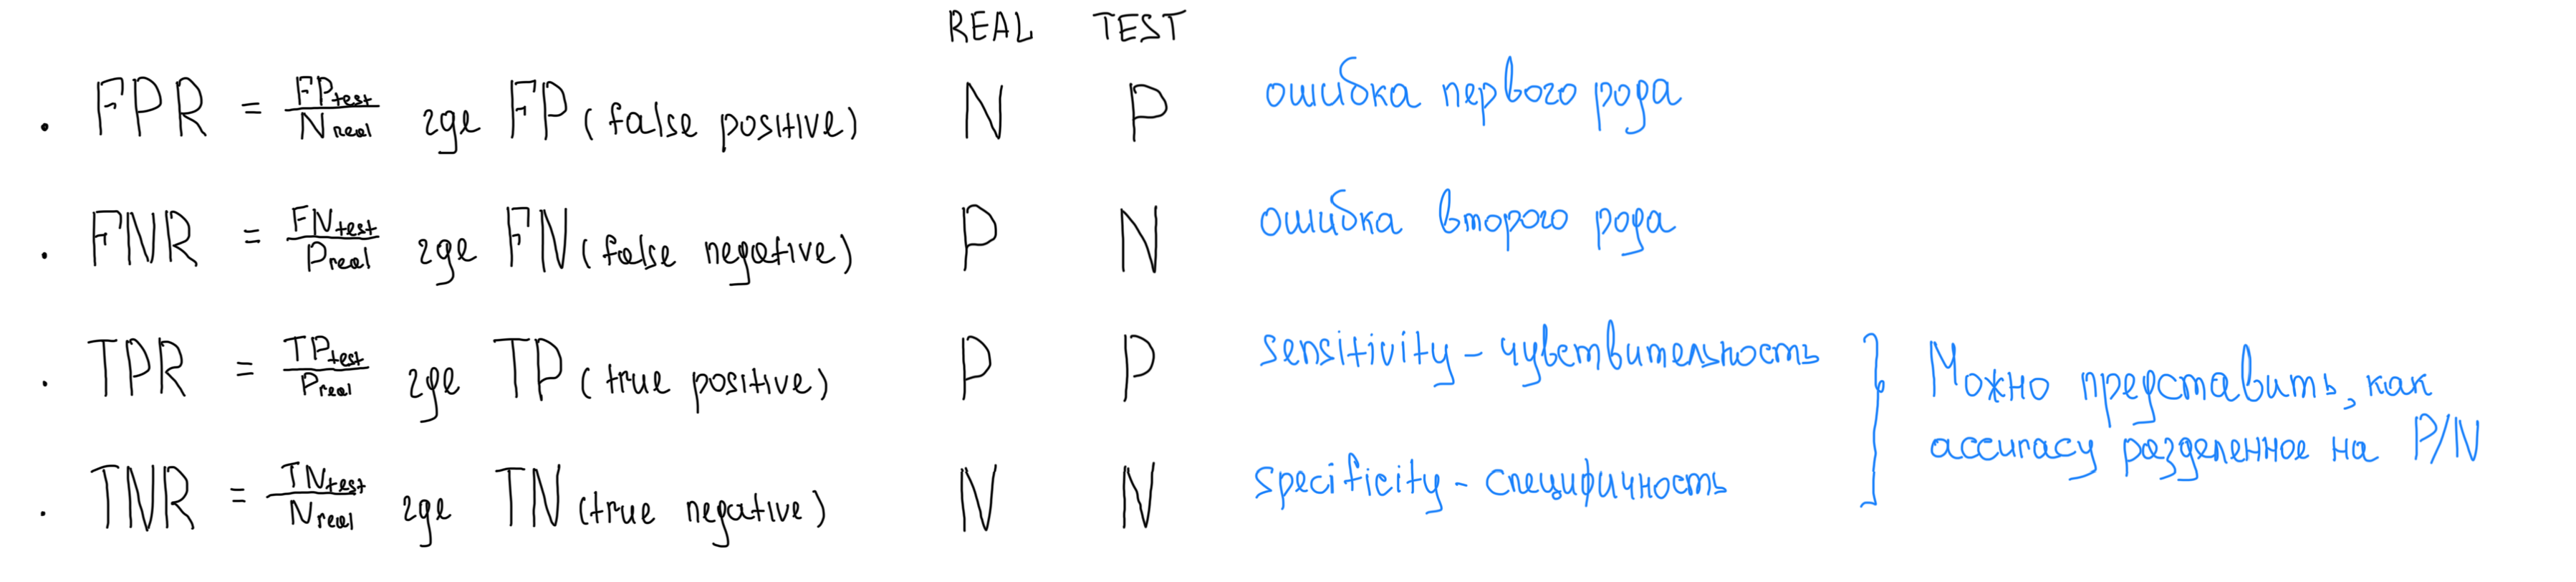 REAL TEST
. FPR = FPtest/Nreal где FP (false positive) N P ошибка первого рода
. FNR = FNtest/Preal где FN (false negative) P N ошибка второго рода
. TPR = TPtest/Preal где TP (true positive) P P sensitivity - чувствительность
. TNR = TNtest/Nreal где TN (true negative) N N specificity - специфичность
Можно представить, как
accuracy разделенное на P/N